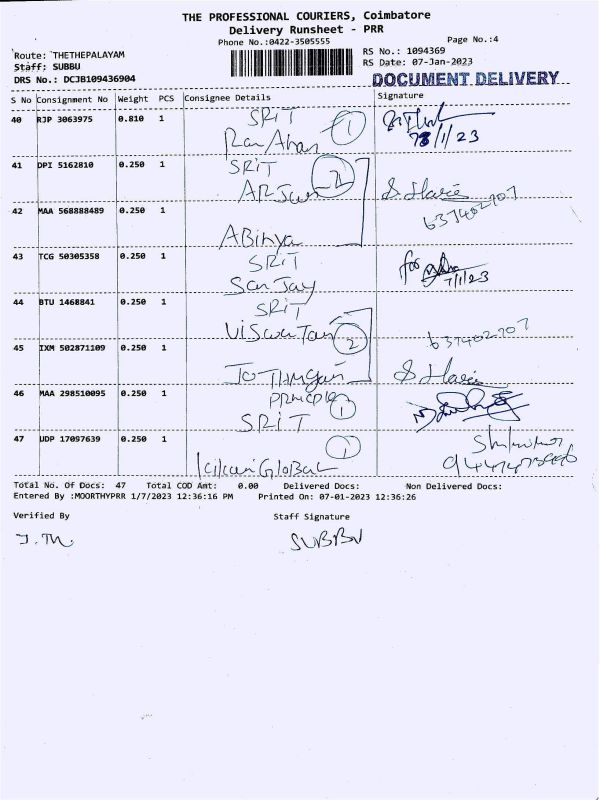 THE PROFESSIONAL COURIERS, Coimbatore
Delivery Runsheet - PRR
Phone No.:0422-3505555
Page No.:4
Route: THETHEPALAYAM
RS No.: 1094369
Staff: SUBBU
RS Date: 07-Jan-2023
DRS No.: DCJB109436904
DOCUMENT DELIVERY
S No Consignment No Weight PCS Consignee Details Signature
40 RJP 3063975 0.810 1 SRiT 1
7/1/23
41 DPI 5162810 0.250 1 SRiT 2
ARJun S. Haris
42 MAA 568888489 0.250 1 637402707
ABinya
43 TCG 50305358 0.250 1 SRiT for
SanJay 7/1/23
44 BTU 1468841 0.250 1 SRiT
2 637402707
45 IXM 502871109 0.250 1
S Haris
46 MAA 298510095 0.250 1 1
SRiT
47 UDP 17097639 0.250 1 1
GloBal
Total No. Of Docs: 47 Total COD Amt: 0.00 Delivered Docs: Non Delivered Docs:
Entered By :MOORTHYPRR 1/7/2023 12:36:16 PM Printed On: 07-01-2023 12:36:26
Verified By Staff Signature
SUBBU